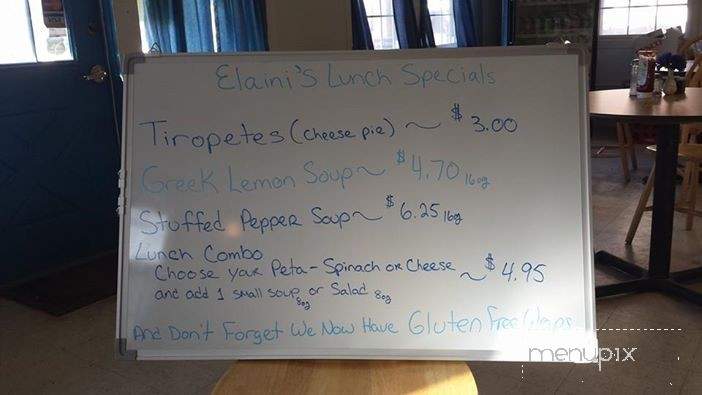 Elaini's Lunch Specials
Tiropetes (cheese pie) ~ $3.00
Greek Lemon Soup ~ $4.70 16oz
Stuffed Pepper Soup ~ $6.25 16oz
Lunch Combo
Choose your Peta - Spinach or Cheese ~ $4.95
and add 1 small soup 8oz or Salad 8oz
And Don't Forget We Now Have Gluten Free Wraps
menupix